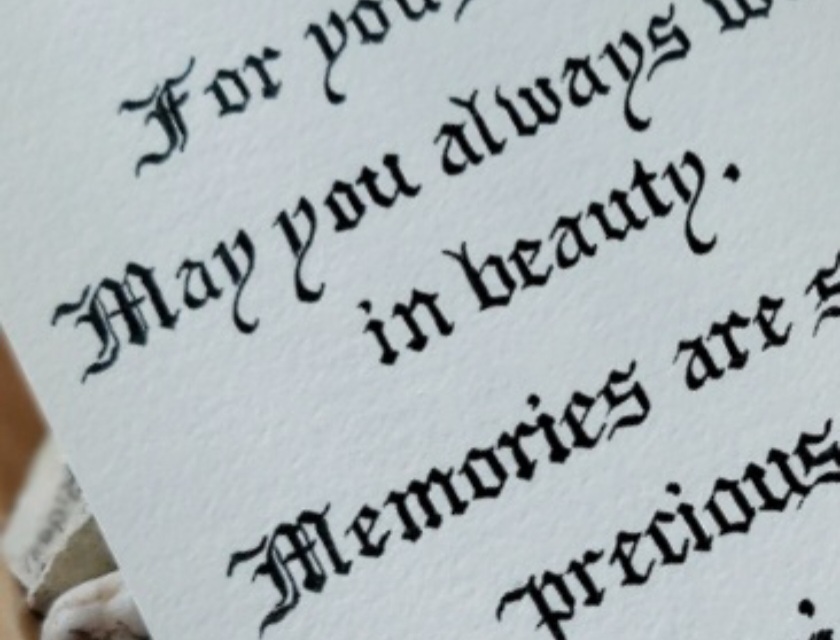 For you,
May you always
in beauty.
Memories are
precious